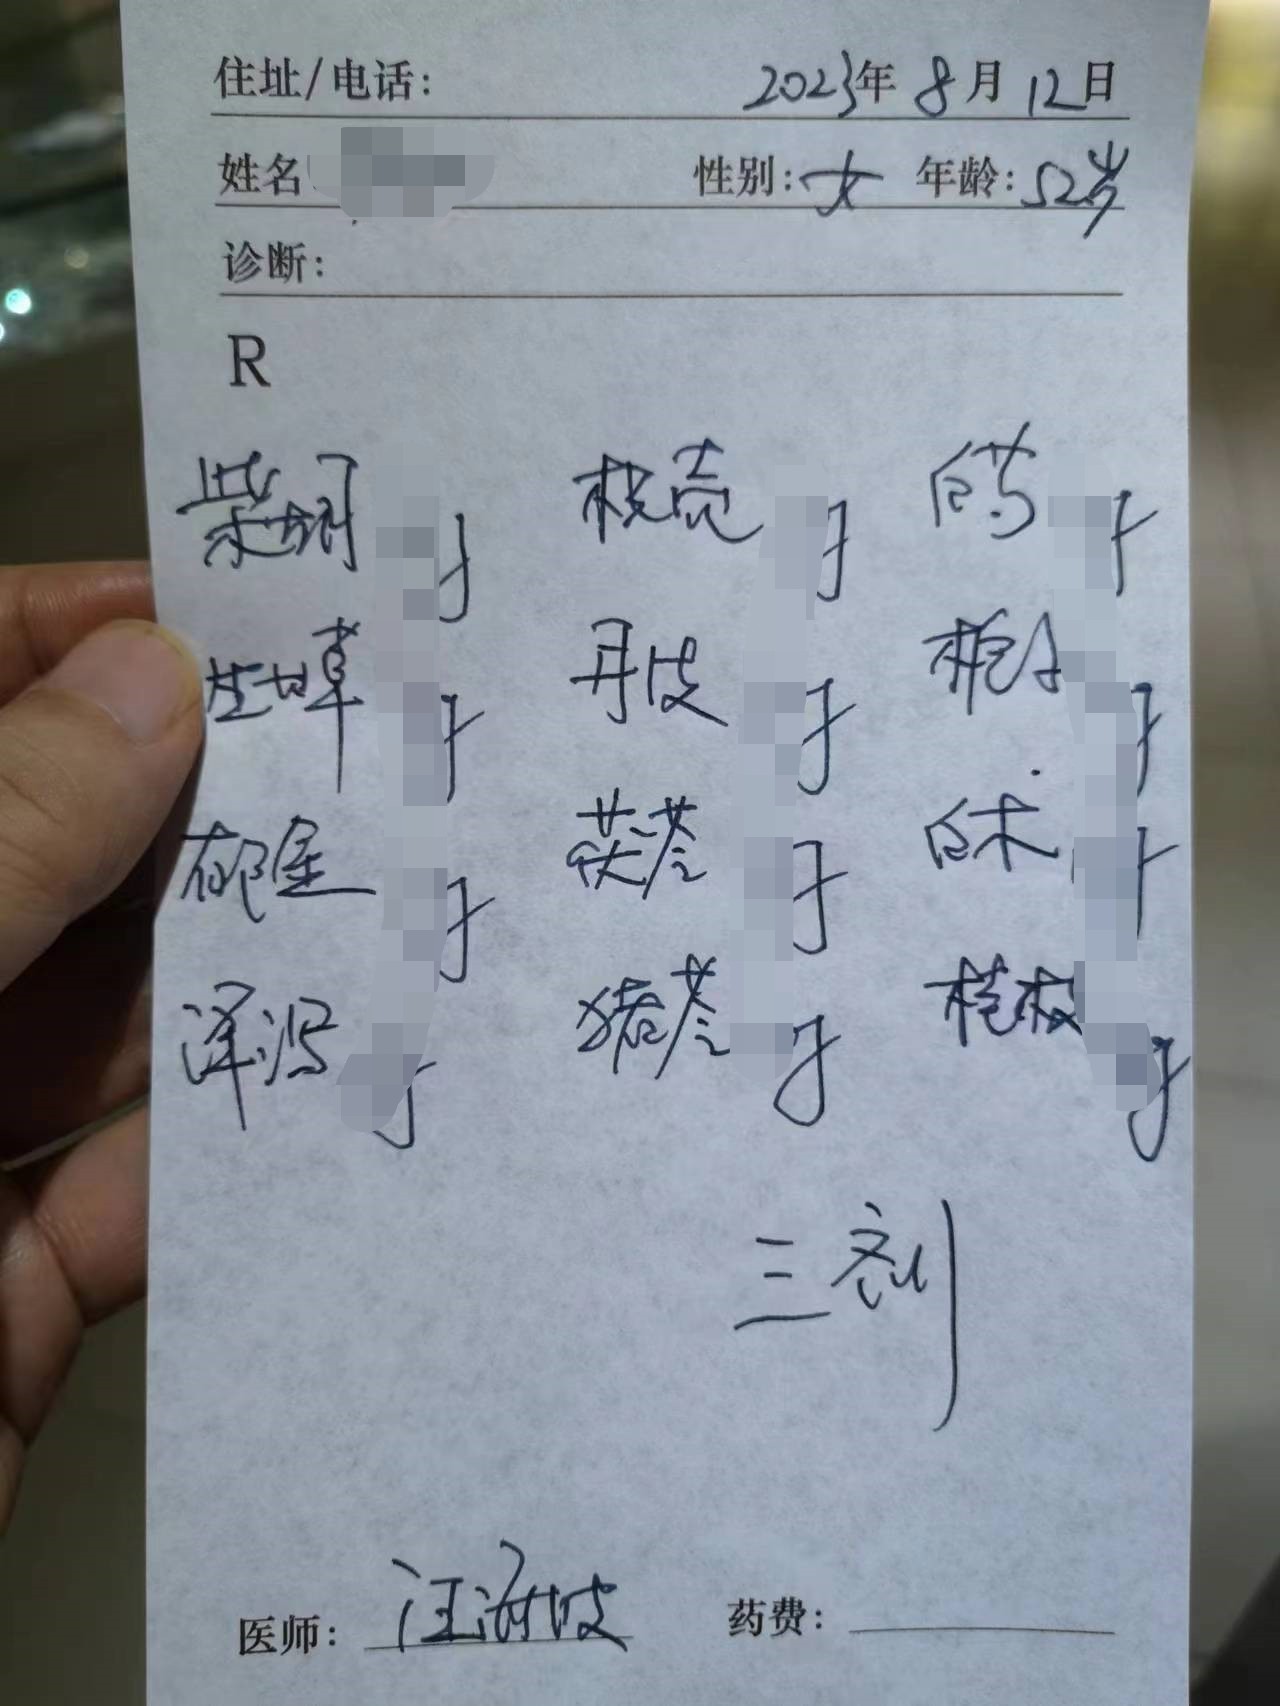 住址/电话: 2023年 8月 12日
姓名 性别:女 年龄:52岁
诊断:
R
柴胡 枳壳 白芍
生甘草 丹皮 栀子
郁金 茯苓 白术
泽泻 猪苓 桂枝
三剂
医师: 汪海波 药费: